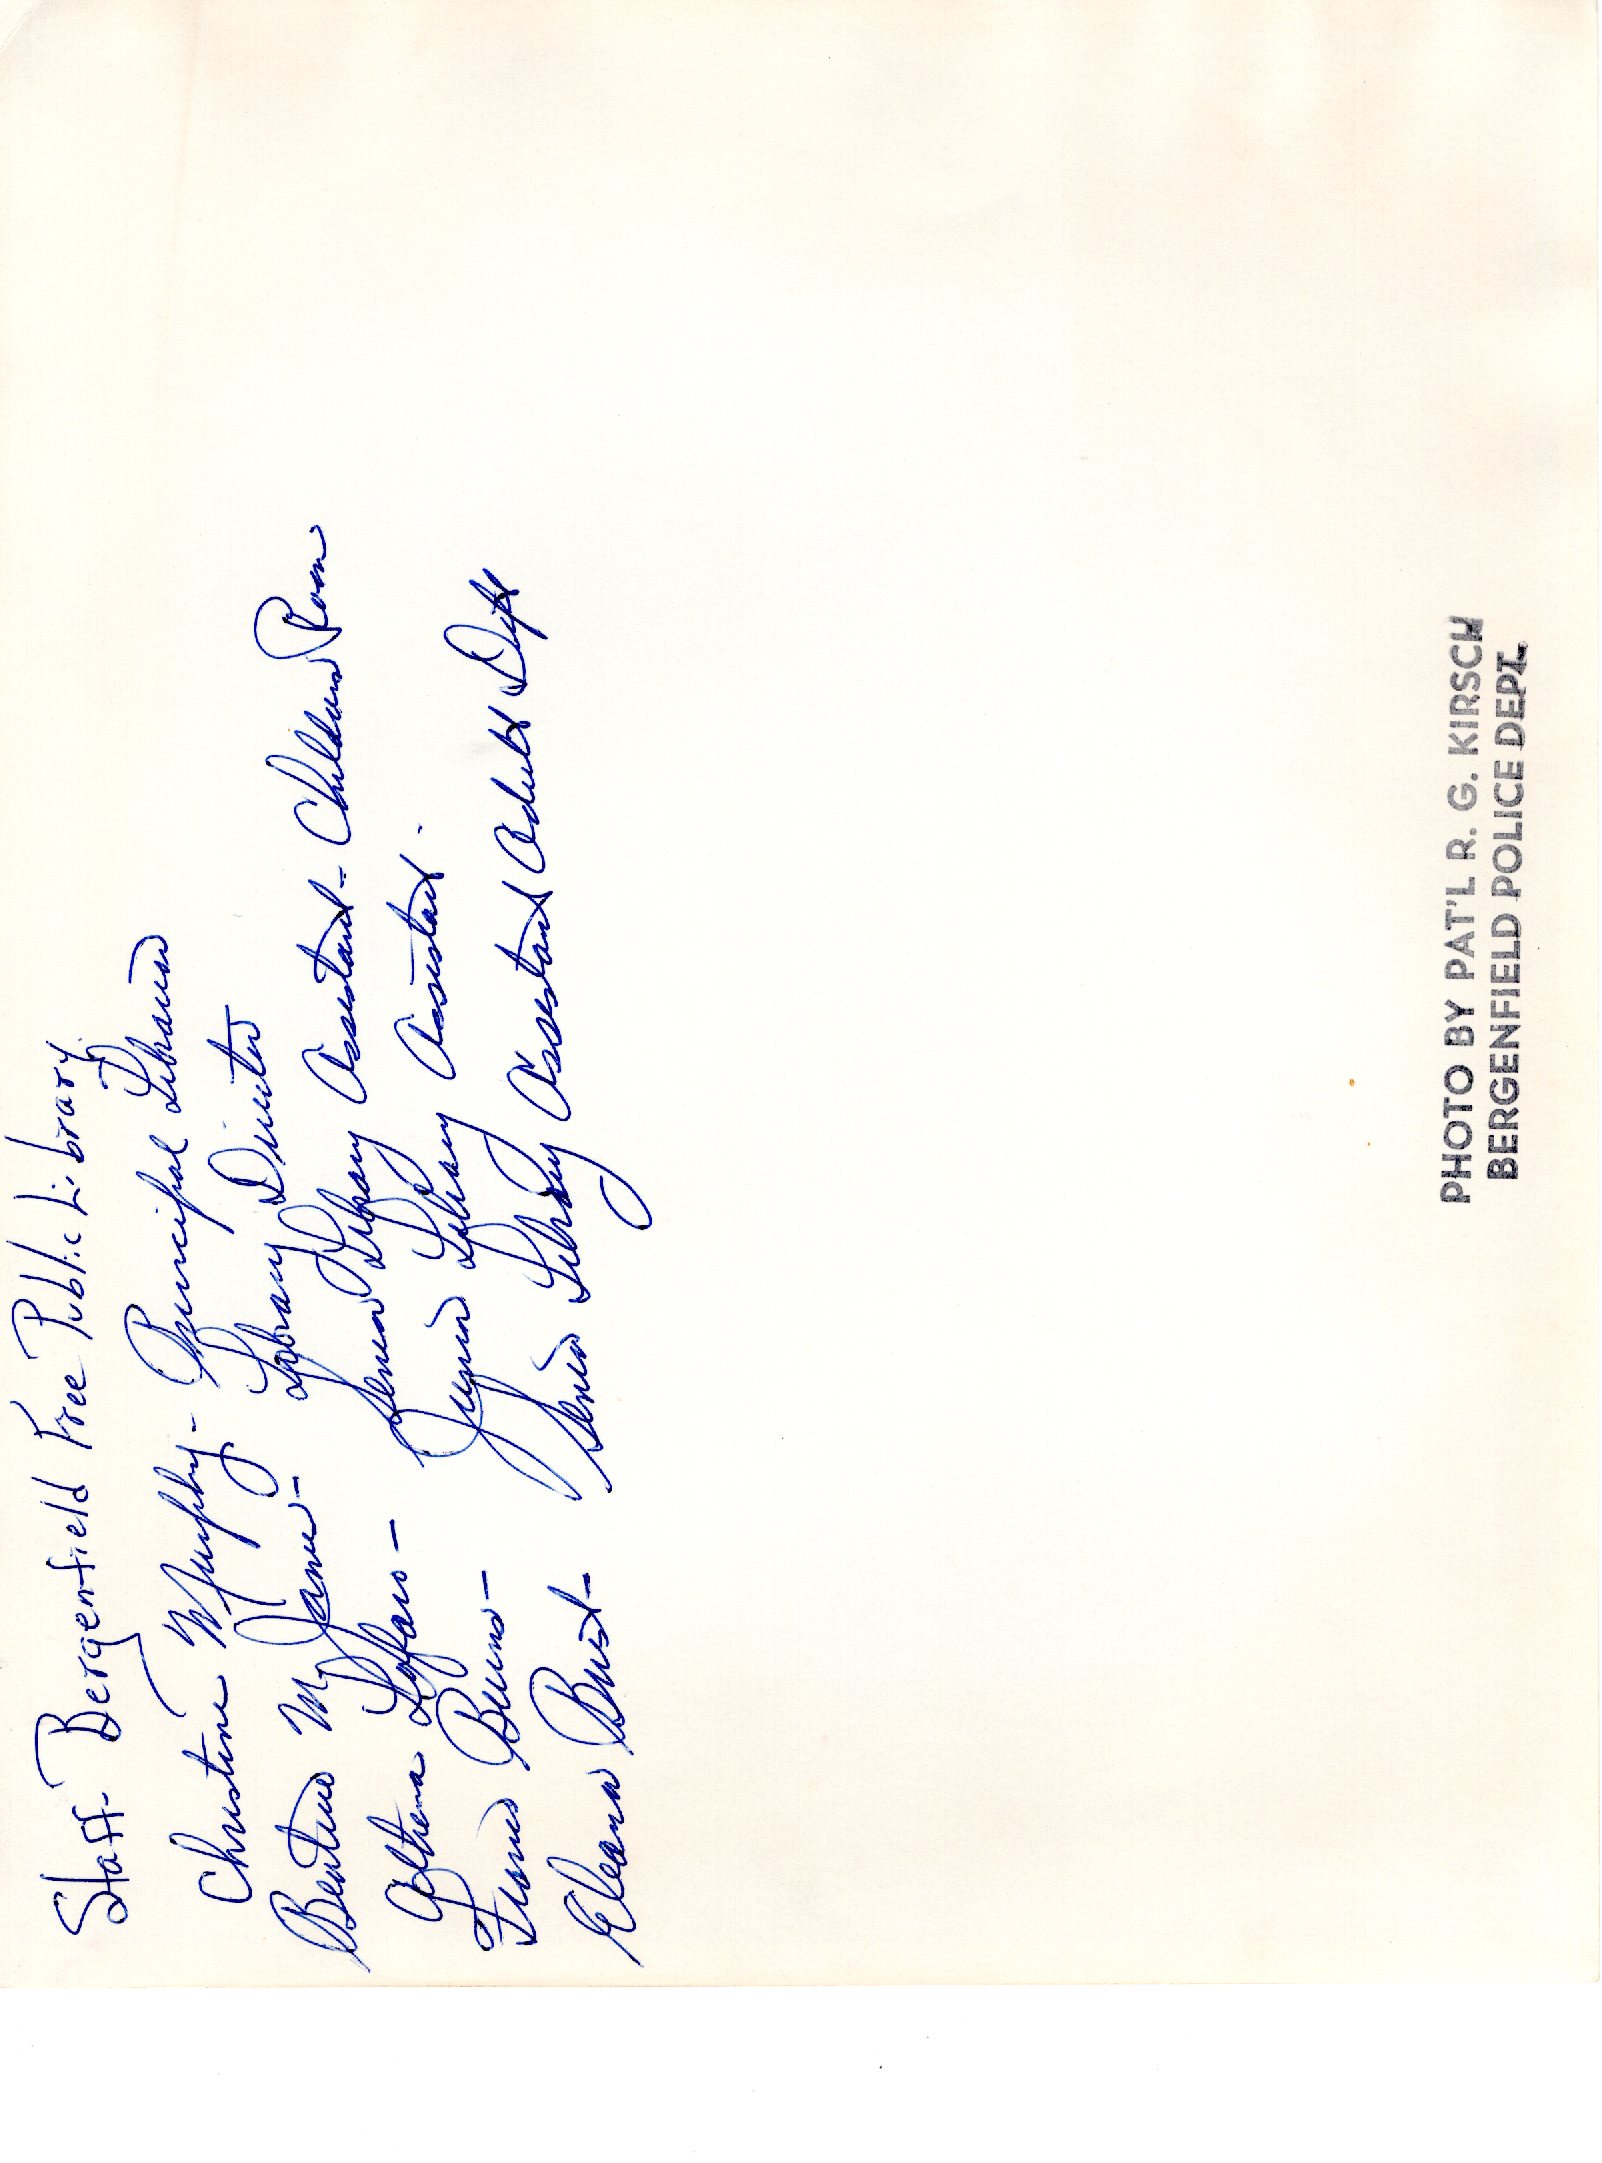 Staff- Bergenfield Free Public Library.
Christine Murphy- Principal Librarian
Beatrice M James- Library Director
Althena Lofaro- Senior Library Assistant- Childrens Room
Bruno- Junior Library Assistant.
Eleanor Brust- Senior Library Assistant Adult Dept
PHOTO BY PAT'L R. G. KIRSCH
BERGENFIELD POLICE DEPT.